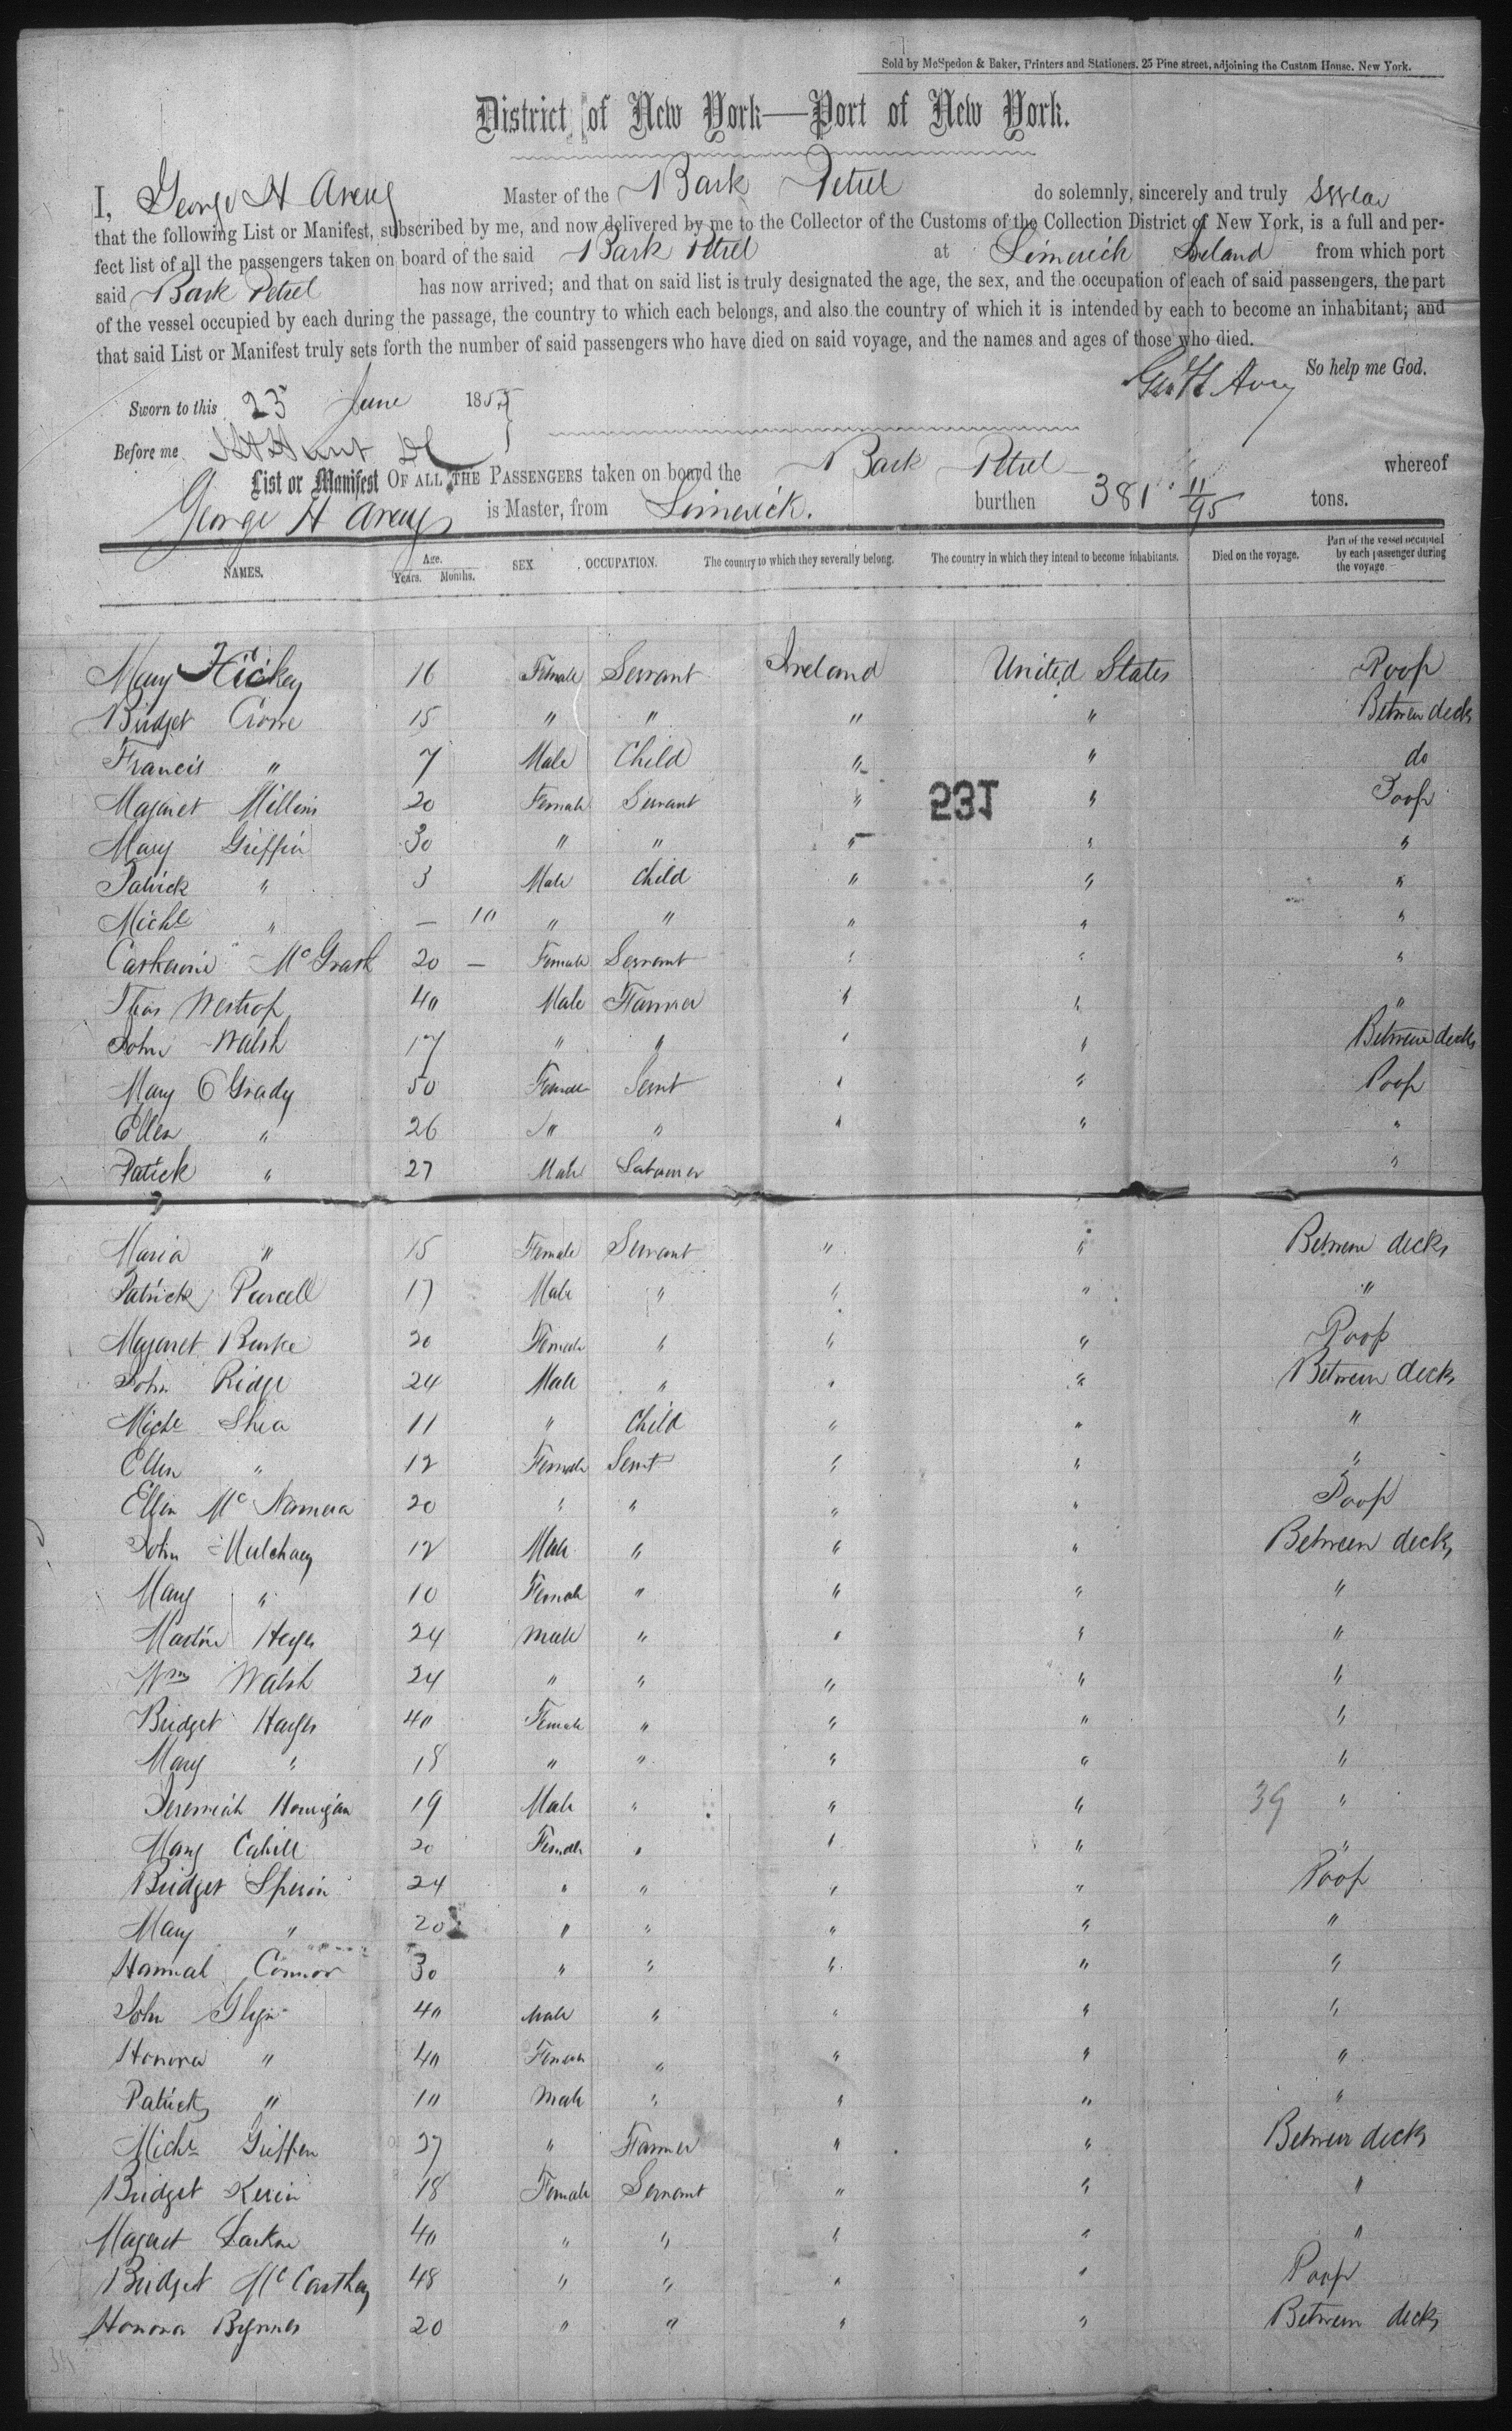 Sold by McSpedon & Baker, Printers and Stationers, 25 Pine street, adjoining the Custom House, New York.
District of New York—Port of New York.
I, George H Avery Master of the Bark Petrel do solemnly, sincerely and truly swear
that the following List or Manifest, subscribed by me, and now delivered by me to the Collector of the Customs of the Collection District of New York, is a full and per-
fect list of all the passengers taken on board of the said Bark Petrel at Limerick Ireland from which port
said Bark Petrel has now arrived; and that on said list is truly designated the age, the sex, and the occupation of each of said passengers, the part
of the vessel occupied by each during the passage, the country to which each belongs, and also the country of which it is intended by each to become an inhabitant; and
that said List or Manifest truly sets forth the number of said passengers who have died on said voyage, and the names and ages of those who died.
So help me God.
Geo H Avery
Sworn to this 25 June 185
Before me
List or Manifest OF ALL THE PASSENGERS taken on board the Bark Petrel whereof
George H Avery is Master, from Limerick. burthen 381 11/95 tons.
NAMES. Age. Years. Months. SEX OCCUPATION. The country to which they severally belong. The country in which they intend to become inhabitants. Died on the voyage. Part of the vessel occupied by each passenger during the voyage
Mary Hickey 16 Female Servant Ireland United States Poop
Bridget Crowe 15 " " " " Between decks
Francis " 7 Male Child " " do
Magaret Millins 20 Female Servant " " Poop
531
Mary Griffin 30 " " " " "
Patrick " 3 Male Child " " "
Michl " — 10 " " " " "
Catherine McGrath 20 — Female Servant " " "
Thos Westrop 40 Male Farmer " " "
John Walsh 17 " " " " Between decks
Mary O Grady 50 Female Servt " " Poop
Ellen " 26 " " " " "
Patick " 27 Male Labourer "
Maria " 15 Female Servant " " Between decks
Patrick Purcell 17 Male " " " "
Magaret Burke 20 Female " " " Poop
John Ridge 24 Male " " " Between decks
Michl Shea 11 " Child " " "
Ellen " 12 Female Servt " " "
Ellen McNamera 20 " " " " Poop
John Mulchaey 12 Male " " " Between decks
Mary " 10 Female " " " "
Martin Hayes 24 Male " " " "
Wm Walsh 24 " " " " "
Bridget Hayes 40 Female " " " "
Mary " 18 " " " " "
Jeremiah Hourigan 19 Male " " " 39 "
Mary Cahill 20 Female " " " "
Bridget 24 " " " " Poop
Mary " 20 " " " " "
Hannah Connor 30 " " " " "
John Glyn 40 Male " " " "
Honora " 40 Female " " " "
Patrick " 10 Male " " " "
Michl Griffen 27 " Farmer " " Between decks
Bridget Kerin 18 Female Servant " " "
Magaret 40 " " " " "
Bridget McCarthey 48 " " " " Poop
Honora Byrnes 20 " " " " Between decks